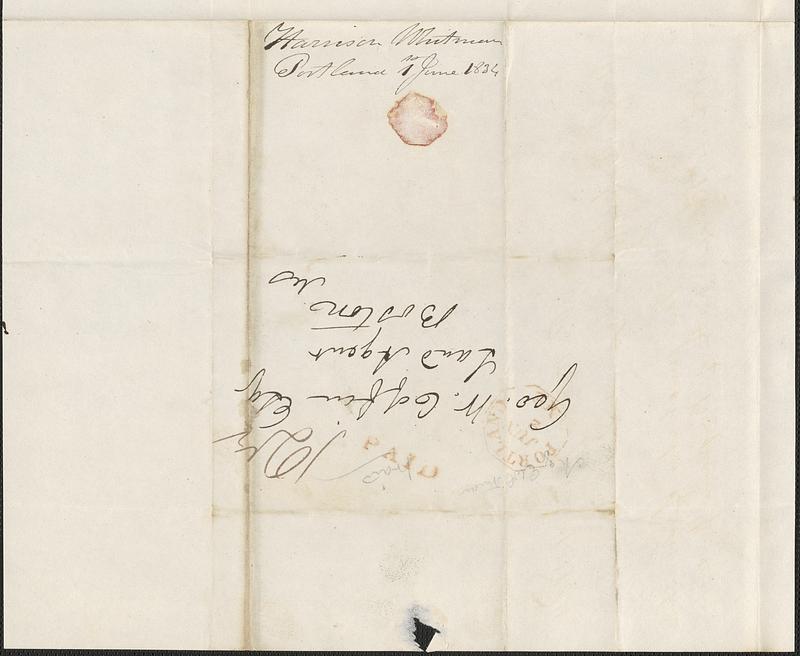 Harrison Whitman
Portland 1st June 1834
Geo. W. Coffin Esq
Land Agent
Boston
Ms
PAID
paid
PORTLAND
JUN